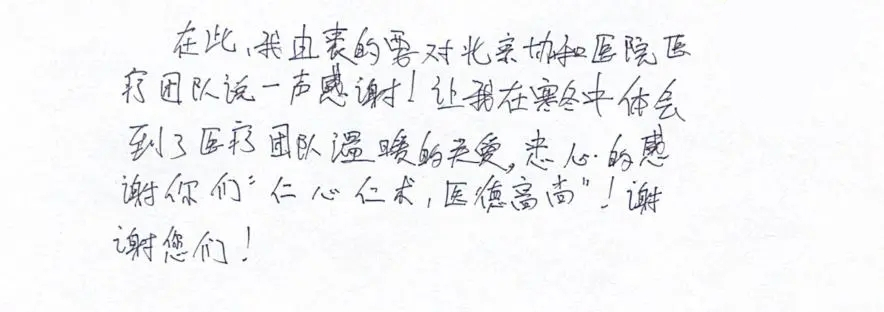 在此,我由衷的要对北京协和医院医
疗团队说一声感谢!让我在寒冬中体会
到了医疗团队温暖的关爱,衷心的感
谢你们“仁心仁术,医德高尚”!谢
谢您们!